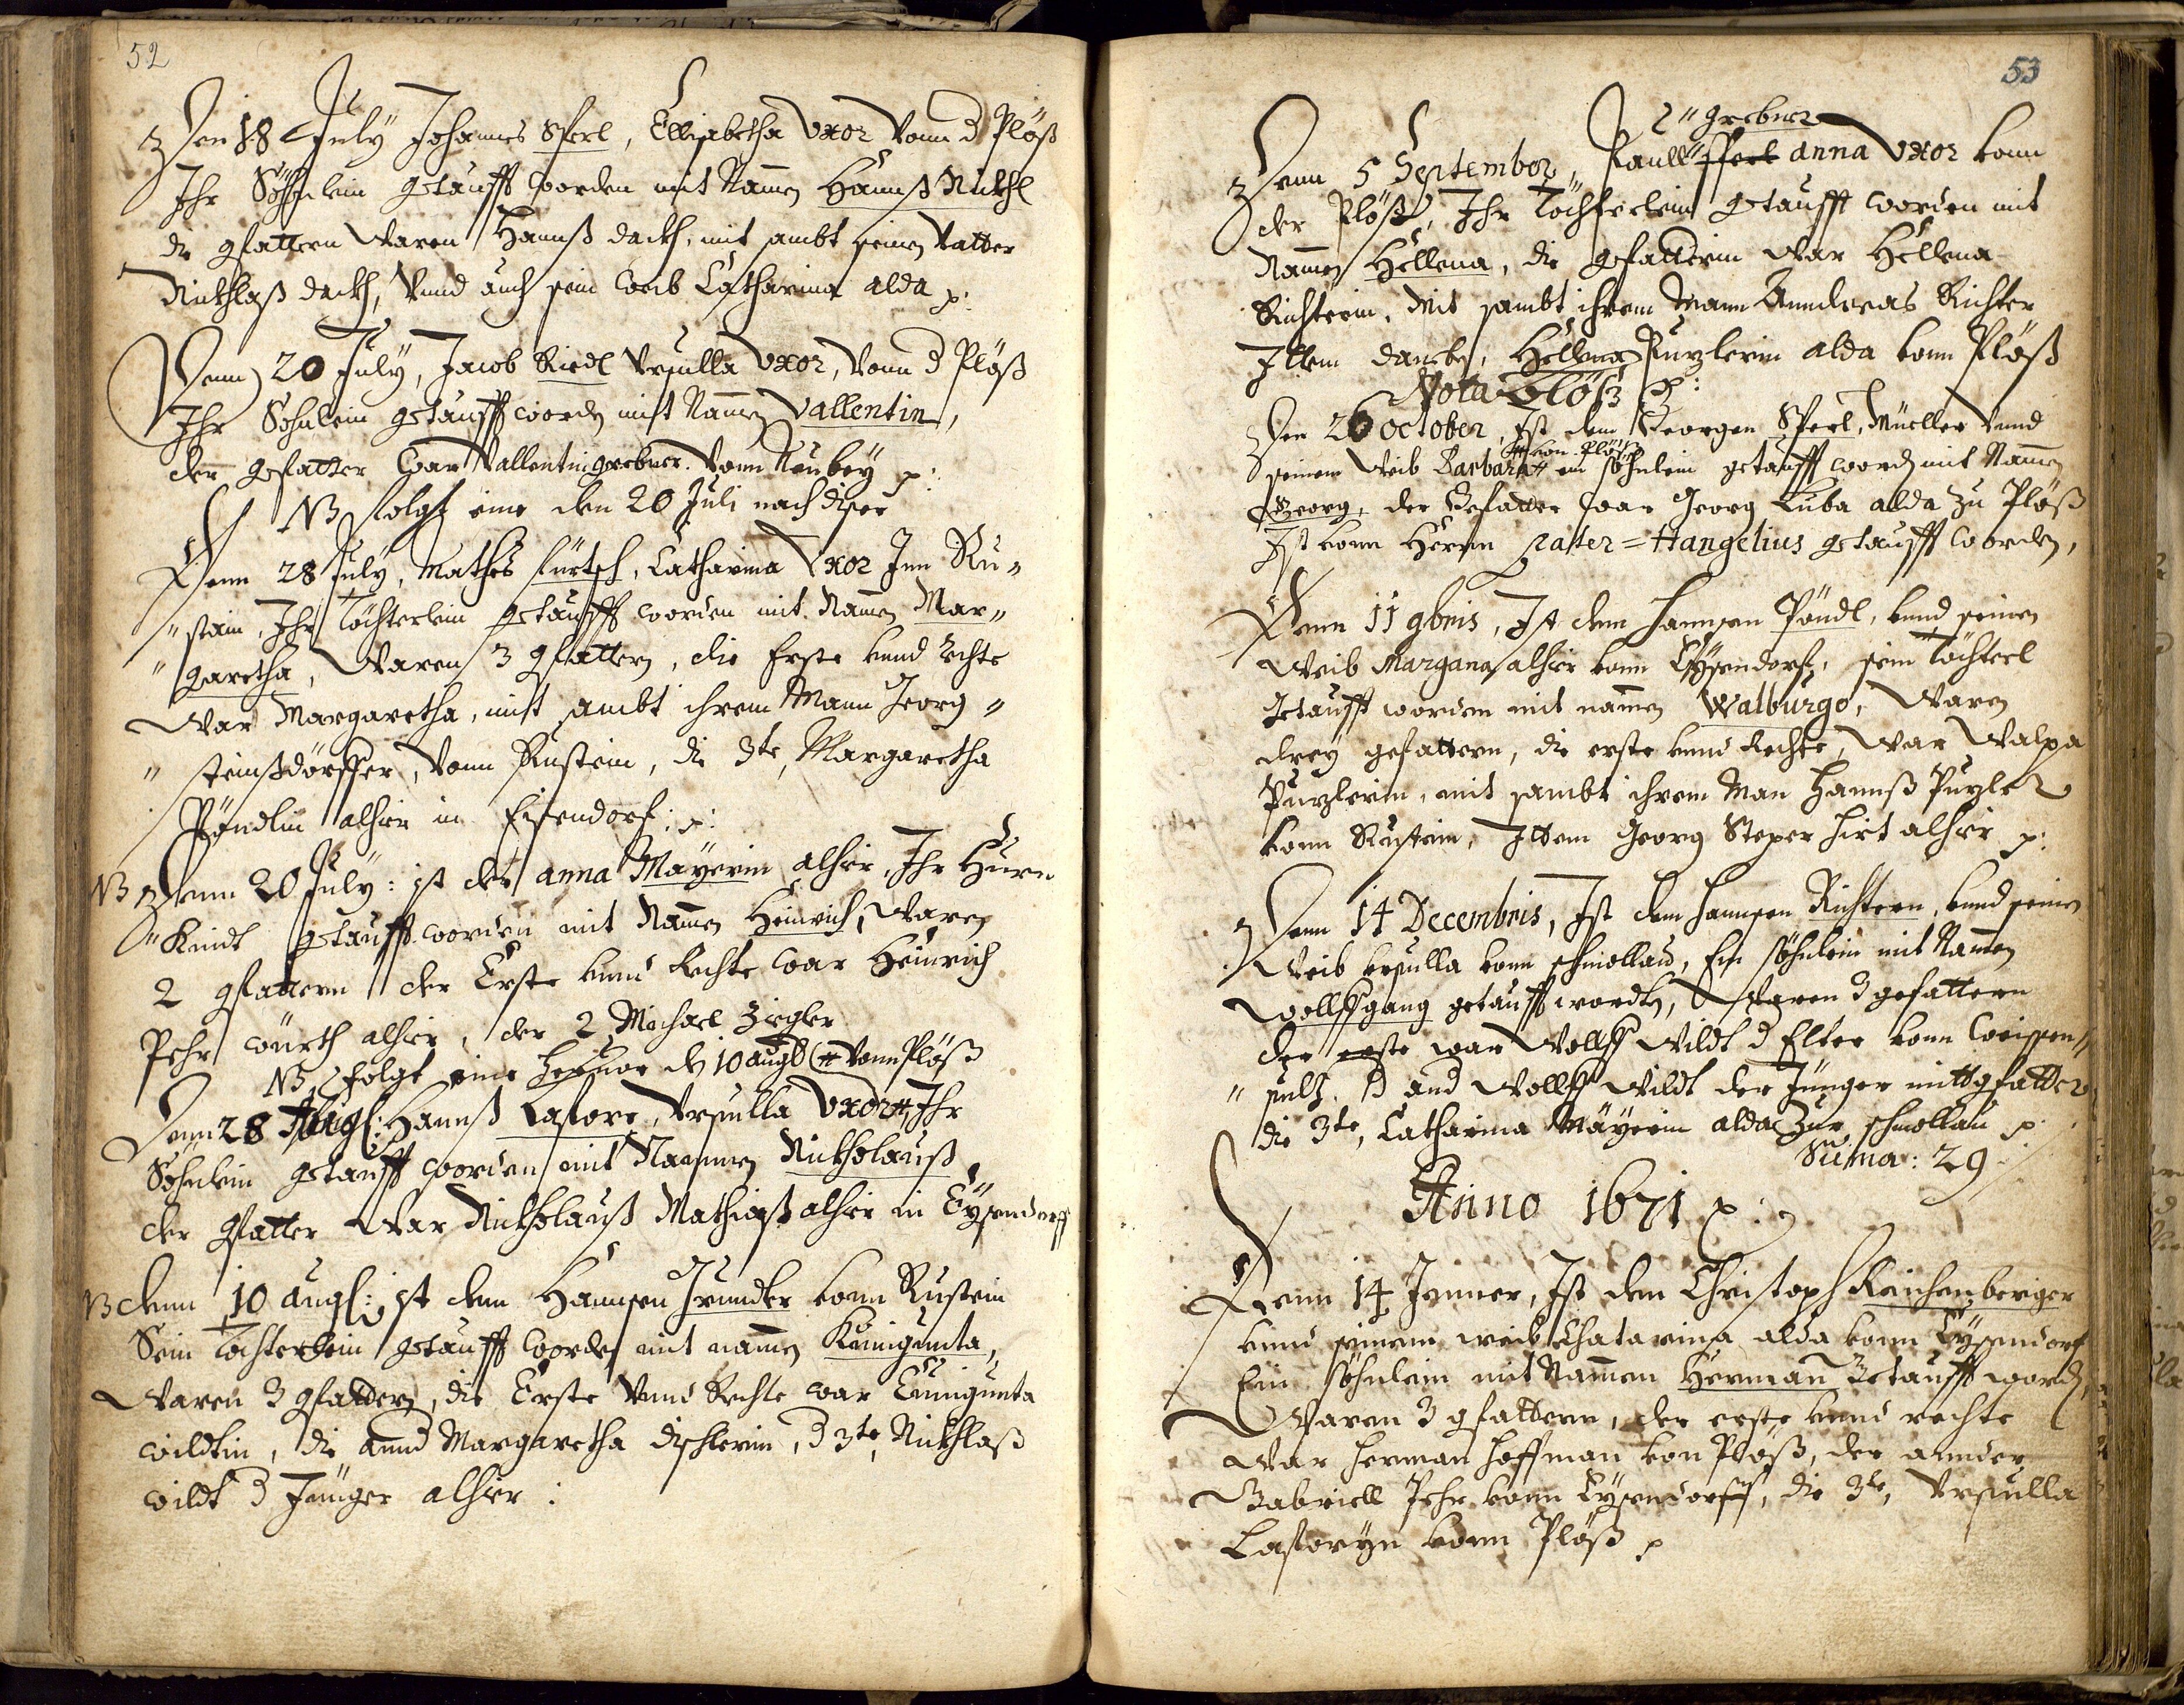 52
Den 18 July Johannes Sperl, Ellisabetha Uxor Vonn d Plöß
Ihr Söhnlein getaufft worden mit Namen Hannß Nickhl
die gfattern Waren Hannß dackh, mit sambt seinen Vatter
Nickhlaß dackh, Vnnd auch sein Weib Catharina alda p:
Denn 20 July, Jacob Riedl Vrsulla Uxor, Vonn d Plöß
Ihr Sohnlein getaufft wordn mit Namen Vallentin,
der gefatter War Vallentin grebner Vonn Neubey p:
NB folgt eine den 20 Juli nach diser
Denn 28 July, Mathes fürtsch, Catharina Uxor Inn Ru„
„stain, Ihr Töchterlein getaufft worden mit Namen Mar„
„garetha, Waren 3 gfattern, die Erste vnnd rechte
War Margaretha, mit sambt ihrem Mann Georg „
„ steinßdörffer, Vonn Rustein, die 3te, Margaretha
Pöndlin alhier in Eisendorf: p:
NB Denn 20 July: ist der anna Mayerin alhier, Ihr Huren
„Kindt getaufft worden mit Namen Heinrich, Waren
2 gfattern der Erste vnnd Rechte War Heinrich
Pehr würth alhier, der 2 Michael Ziegler
NB folgt eine hervor den 10 augb (# Vonn Plöß
Denn 28 Aug: Hannß Lastore, Vrsulla Uxor #, Ihr
Söhnlein getaufft worden mit Nammen Nickholauß,
der gfatter War Nickholauß Mathiaß alhier in Eysendorff
NB denn 10 aug: ist dem Hannsen Gründer vonn Rustein
Sein Tochterlein getaufft worden mit namen Kunigunta,
Waren 3 gfattern, die Erste Vnnd Rechte war Cunigunta
wildtin, die annd Margaretha dischlerin, d 3te, Nickhlaß
wildt d Jünger alhier :
53
„ grebner
Denn 5 September, Paull Sperl anna Uxor vonn
der Plöß, Ihr Töchterlein getaufft worden mit
Namen Hellena, die gefatterin War Hellena
Richterin, mit sambt ihrem Mann Anndreas Richter
Ittem Hellena Purzlerin alda vonn Plöß
Nota Plöß p:
Den 26 October, Ist dem Georgen Sperl, Müeller Vnnd
# von Plöß
seinem Weib Barbara # ein Söhnlein getaufft wordn mit Namen
Georg, der Gefatter war Georg Luba alda zu Plöß
Ist vonn Herrn patter = Hangelius getaufft worden,
Denn 11 9bris, Ist dem Hannsen Pöndl, vnnd seinen
Weib Margana alhier vonn Eysendorf, sein Töchterl
Getaufft worden mit namen Walburgo, Waren
drey gefattern, die erste vnnd Rechte, war Walpa
Purzlerin, mit sambt ihrem Man Hannß Purzler
vonn Rustein, Ittem Georg Steper hirt alhier p:
Denn 14 Decembris, Ist dem Hannsen Richtern, vnnd seinen
Weib Vrsulla vonn schmollau, Ein Söhnlein mit Namen
wollffgang getaufft worden, Waren 3 gefattern
der erste war Wolff Wildt d Elter vonn Weissen„
„ sulz. d and Wollff Wildt der Jünger mittgfatter
die 3te, Catharina Mäyerin alda Zur schmollau p.
Suma: 29
Anno 1671 p:
Denn 14 Jenner, Ist dem Christoph Reichenberger
vnnd seinem weib Chatarina alda vonn Eysendorf
Ein Söhnlein mit Namen Herman Getaufft wordn,
Waren 3 gfattern, der erste vnnd rechte
War Herman Hoffman von Plöß, der annder
Gabriell Pehr vonn Eysendorff, die 3te, Vrsulla
Lastoryn vonn Plöß p